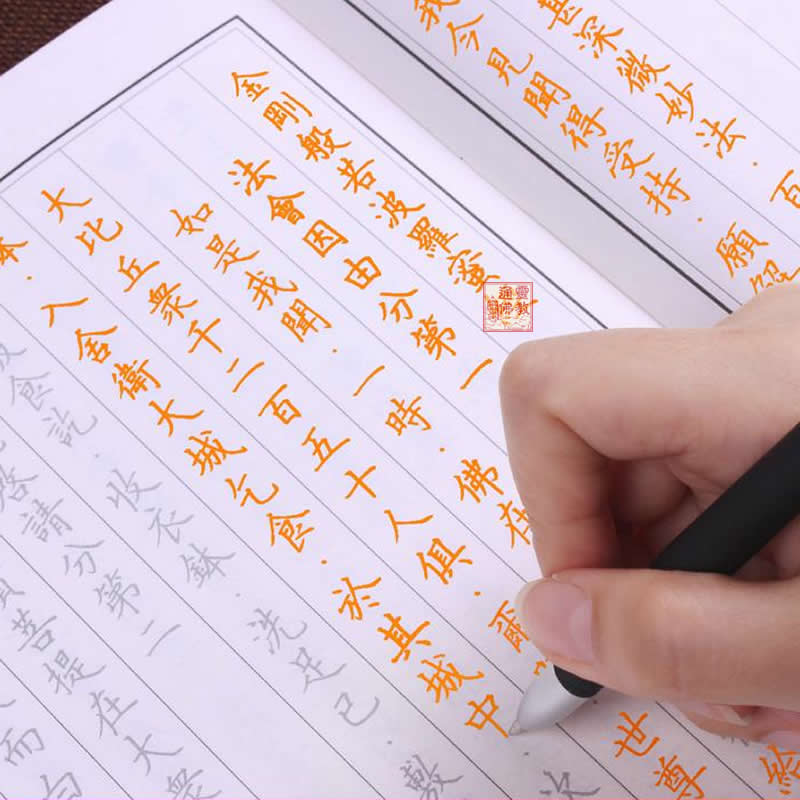 甚深微妙法．百
我今見聞得受持．願解
金剛般若波羅蜜
法會因由分第一
如是我聞．一時．佛在
大比丘眾千二百五十人俱．爾 世尊
．入舍衛大城乞食．於其城中 次
食訖．收衣鉢．洗足已．敷
啟請分第二
菩提在大眾
而